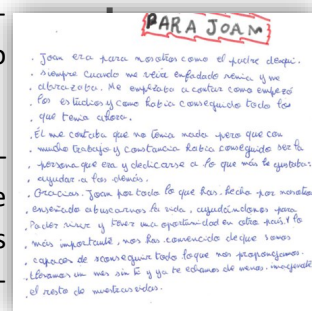 PARA JOAN
. Joan era para nosotros como el padre de aqui.
. siempre cuando me veia enfadado venia y me
. abrazaba. Me empezaba a contar como empezó
. los estudios y como había conseguido todo los
. que tenia ahora.
. El me contaba que no tenia nada pero que con
. mucho trabajo y constancia había conseguido ser la
. persona que era y dedicarse a lo que más le gustaba:
. ayudar a los demás.
. Gracias. Joan por todo lo que has. hecho por nosotros
. enseñado a buscarnos la vida, ayudándonos para
. Poder vivir y tener una oportunidad en otro país, Y lo
. más importante, nos has convencido de que somos
. capaces de conseguir todo lo que nos propongamos.
. Llevamos un mes sin ti y ya te echamos de menos. imaginate
. el resto de nuestras vidas.